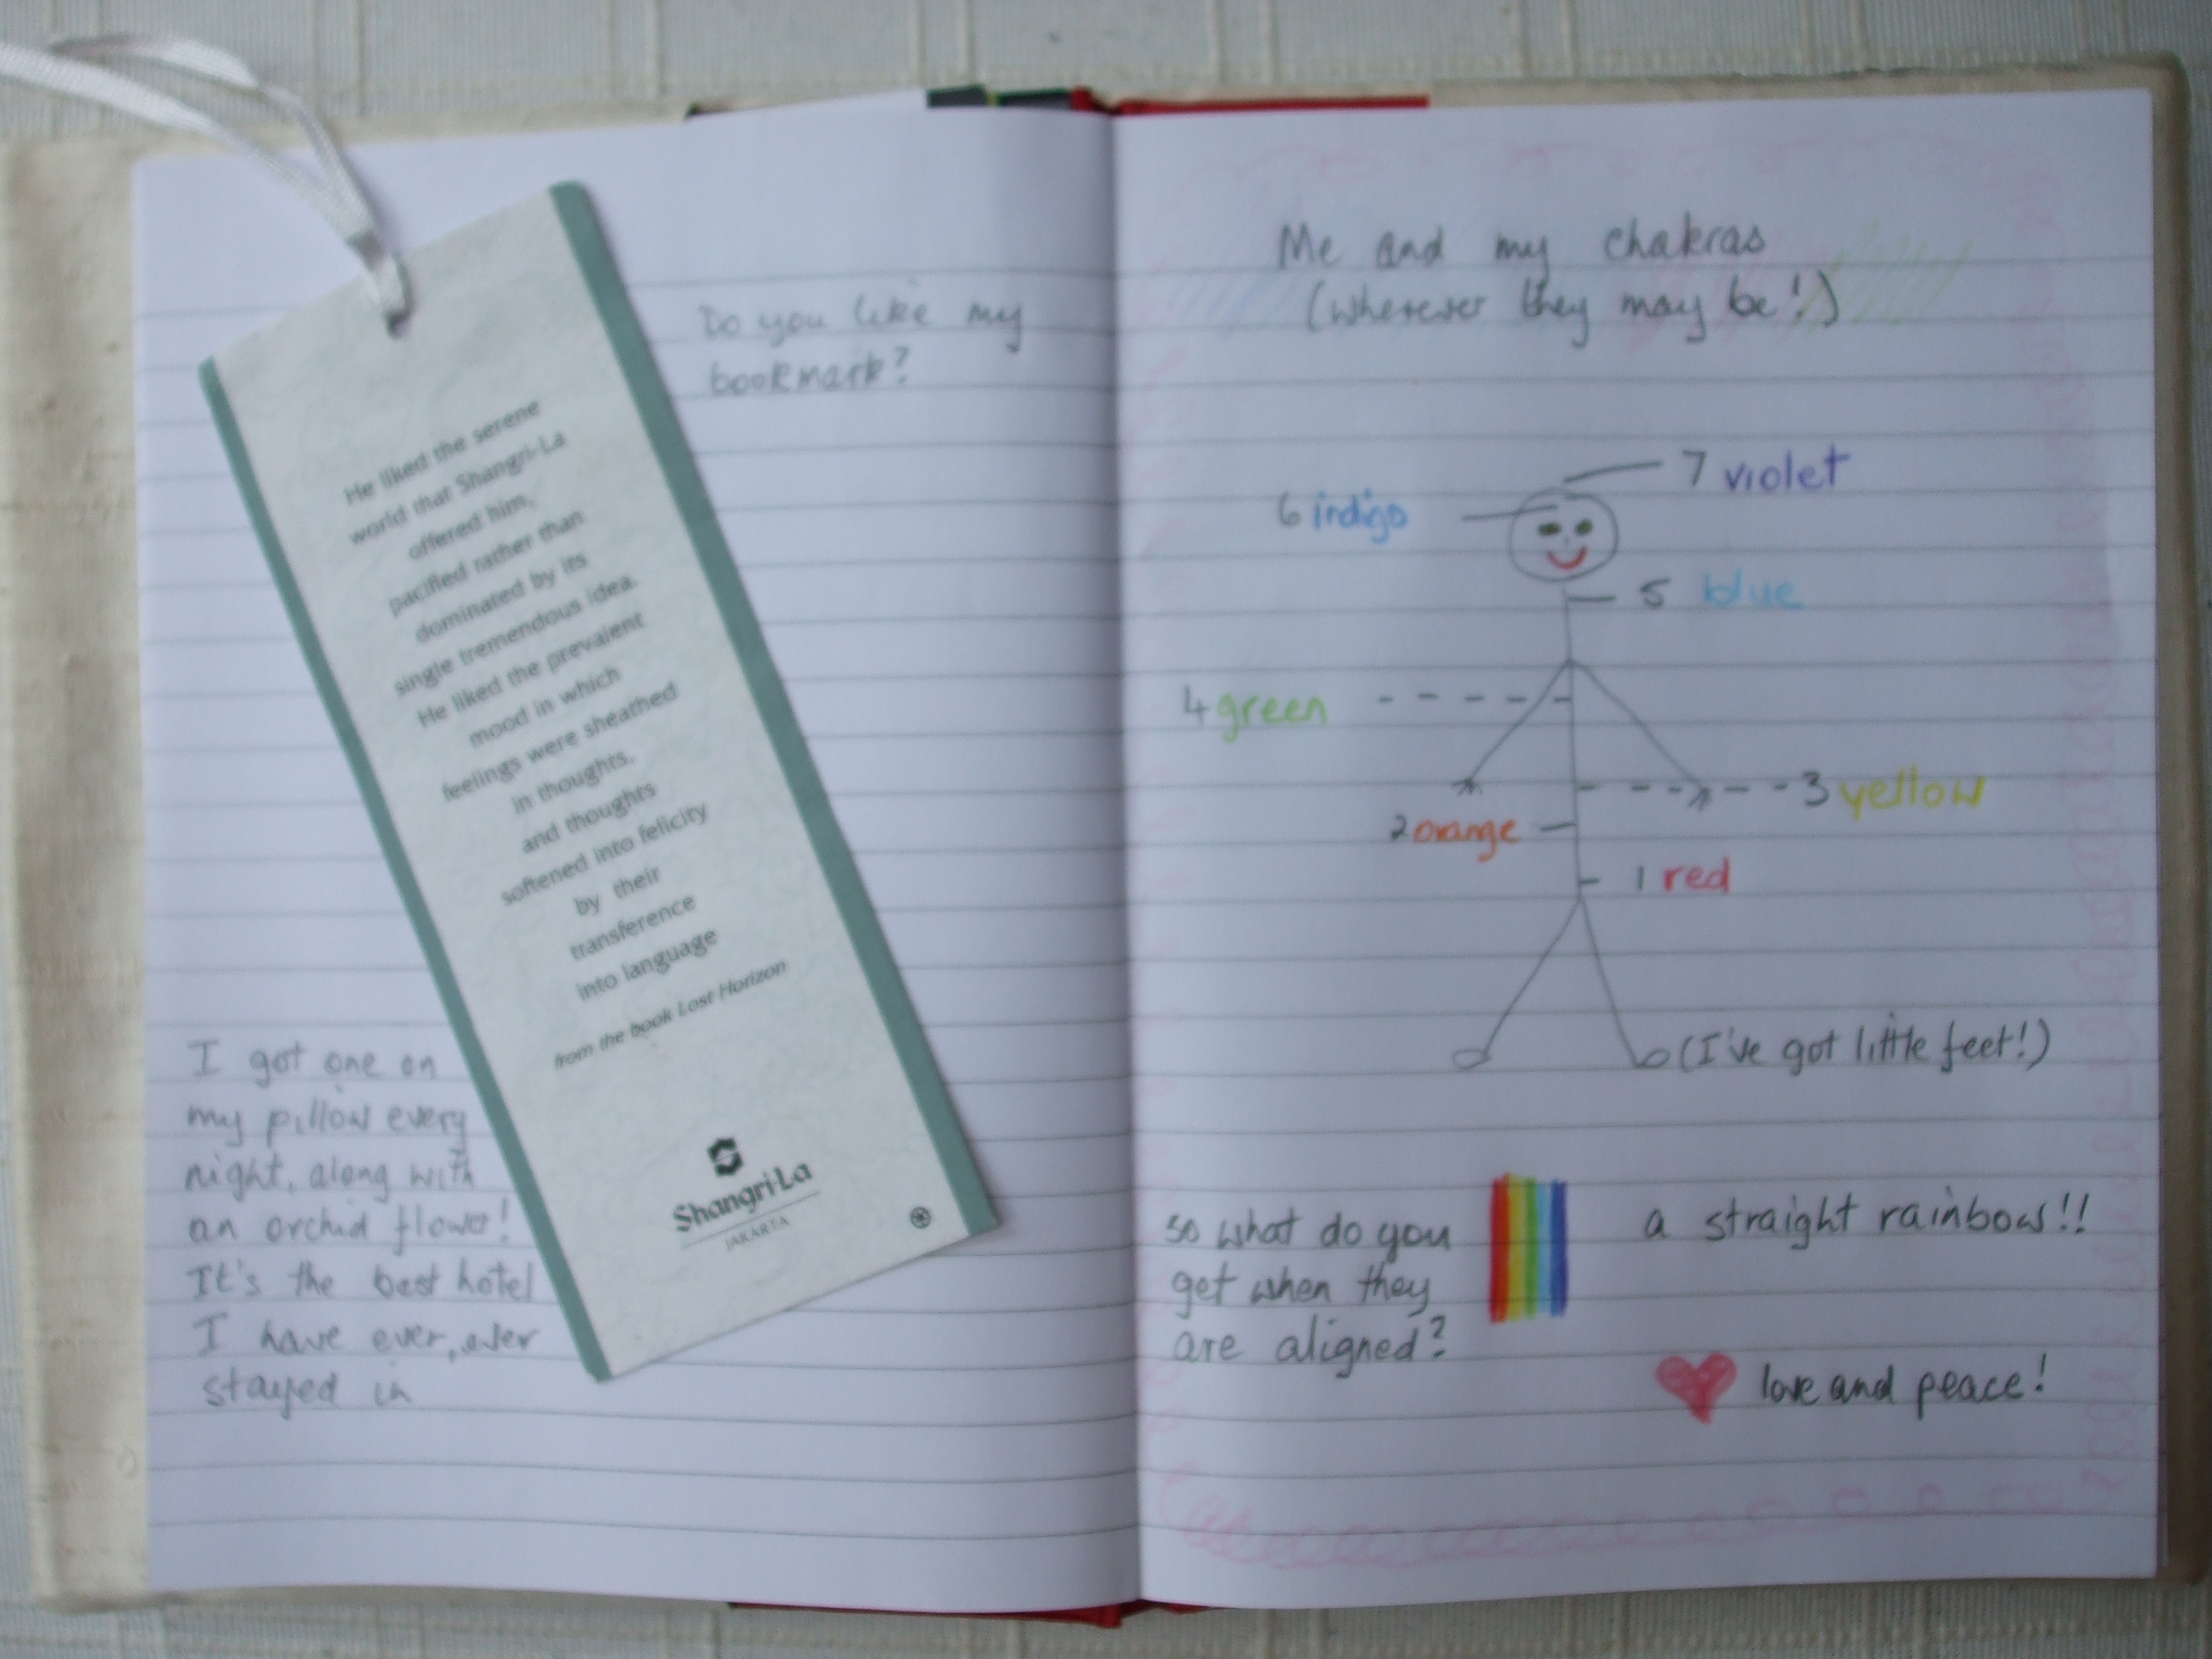 Do you like my
bookmark?
He liked the serene
world that Shangri-La
offered him,
pacified rather than
dominated by its
single tremendous idea.
He liked the prevalent
mood in which
feelings were sheathed
in thoughts,
and thoughts
softened into felicity
by their
transference
into language
from the book Lost Horizon
Shangri-La
JAKARTA
I got one on
my pillow every
night, along with
an orchid flower!
It's the best hotel
I have ever, ever
stayed in
Me and my chakras
(wherever they may be!)
7 violet
6 indigo
5 blue
4 green
3 yellow
2 orange
1 red
(I've got little feet!)
so what do you
get when they
are aligned?
a straight rainbow!!
love and peace!